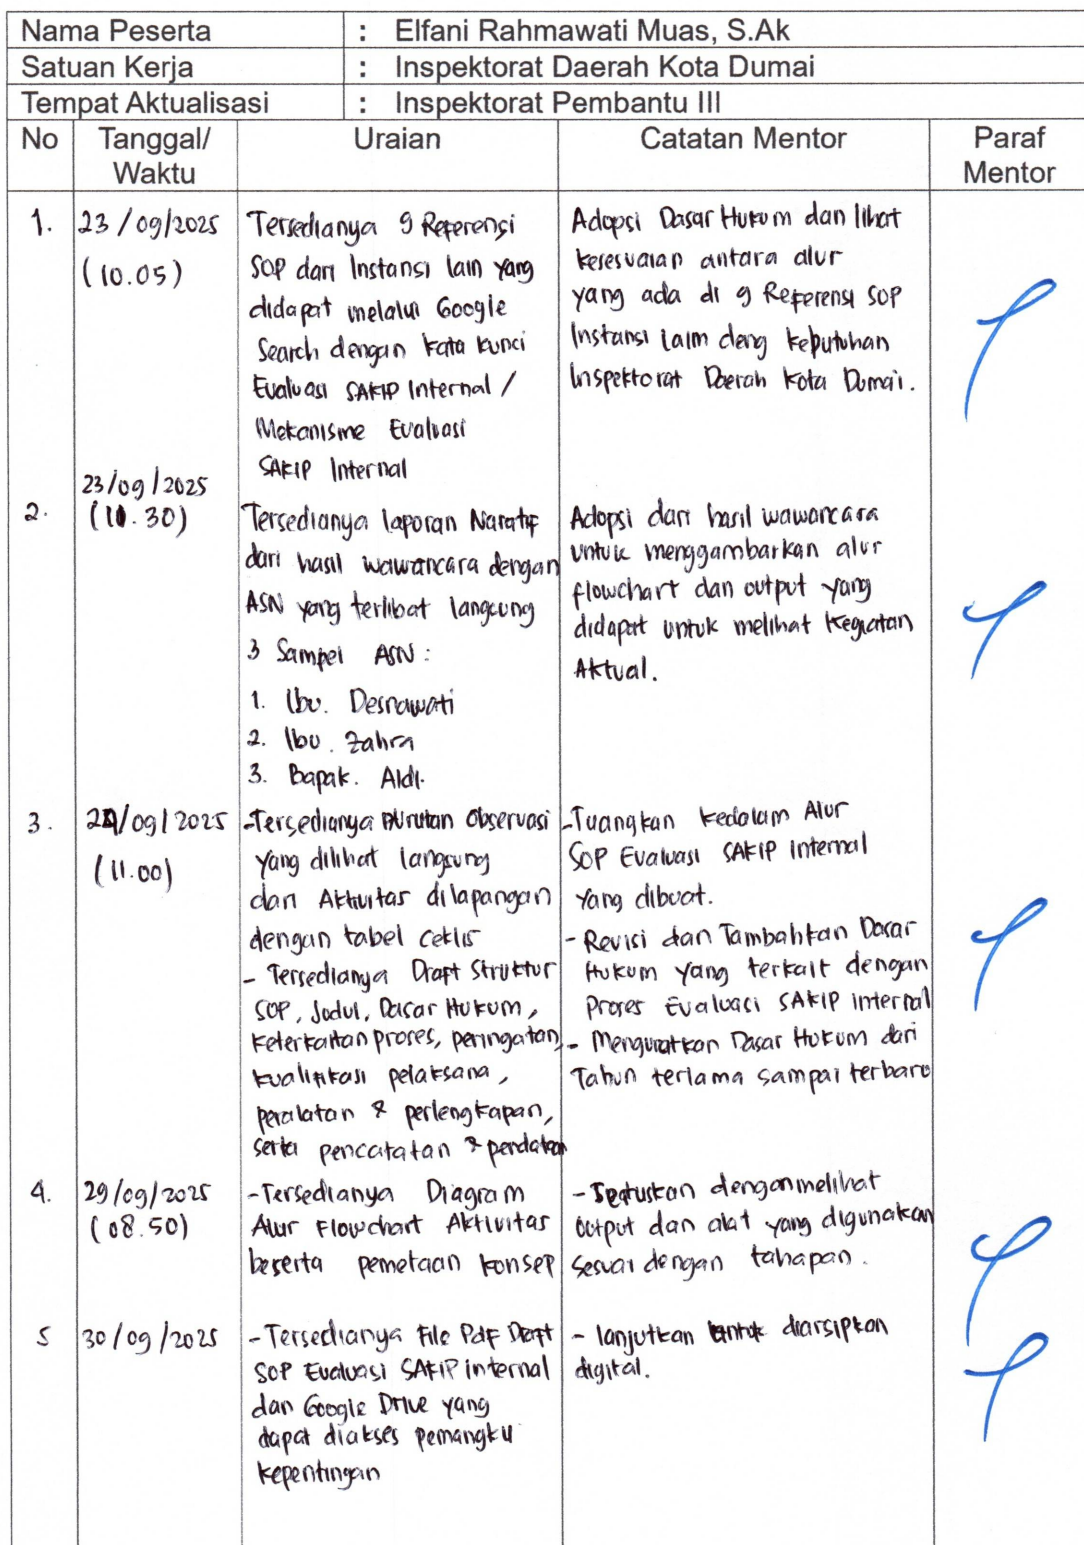 Nama Peserta : Elfani Rahmawati Muas, S.Ak
Satuan Kerja : Inspektorat Daerah Kota Dumai
Tempat Aktualisasi : Inspektorat Pembantu III
No Tanggal/ Waktu Uraian Catatan Mentor Paraf Mentor
1. 23/09/2025
(10.05)
Tersedianya 9 Referensi
SOP dari Instansi lain yang
didapat melalui Google
Search dengan kata kunci
Evaluasi SAKIP Internal /
Mekanisme Evaluasi
SAKIP Internal
Adopsi Dasar Hukum dan lihat
kesesuaian antara alur
yang ada di 9 Referensi SOP
Instansi lain deng kebutuhan
Inspektorat Daerah Kota Dumai.
2. 23/09/2025
(10.30)
Tersedianya laporan Naratif
dari hasil wawancara dengan
ASN yang terlibat langsung
3 Sampel ASN :
1. Ibu. Desnawati
2. Ibu. Zahra
3. Bapak. Aldi.
Adopsi dari hasil wawancara
untuk menggambarkan alur
flowchart dan output yang
didapat untuk melihat Kegiatan
Aktual.
3. 24/09/2025
(11.00)
-Tersedianya Urutan Observasi
yang dilihat langsung
dari Aktivitas dilapangan
dengan tabel ceklis
- Tersedianya Draft Struktur
SOP, Judul, Dasar Hukum,
keterkaitan proses, peringatan,
kualifikasi pelaksana,
peralatan & perlengkapan,
serta pencatatan & pendataan
-Tuangkan kedalam Alur
SOP Evaluasi SAKIP internal
yang dibuat.
- Revisi dan Tambahkan Dasar
Hukum yang terkait dengan
Proses Evaluasi SAKIP internal
- Mengurutkan Dasar Hukum dari
Tahun terlama sampai terbaru
4. 29/09/2025
(08.50)
-Tersedianya Diagram
Alur Flowchart Aktivitas
beserta pemetaan konsep
- dengan melihat
output dan alat yang digunakan
sesuai dengan tahapan.
5 30/09/2025
-Tersedianya File Pdf Draft
SOP Evaluasi SAKIP internal
dan Google Drive yang
dapat diakses pemangku
kepentingan
- lanjutkan untuk diarsipkan
digital.